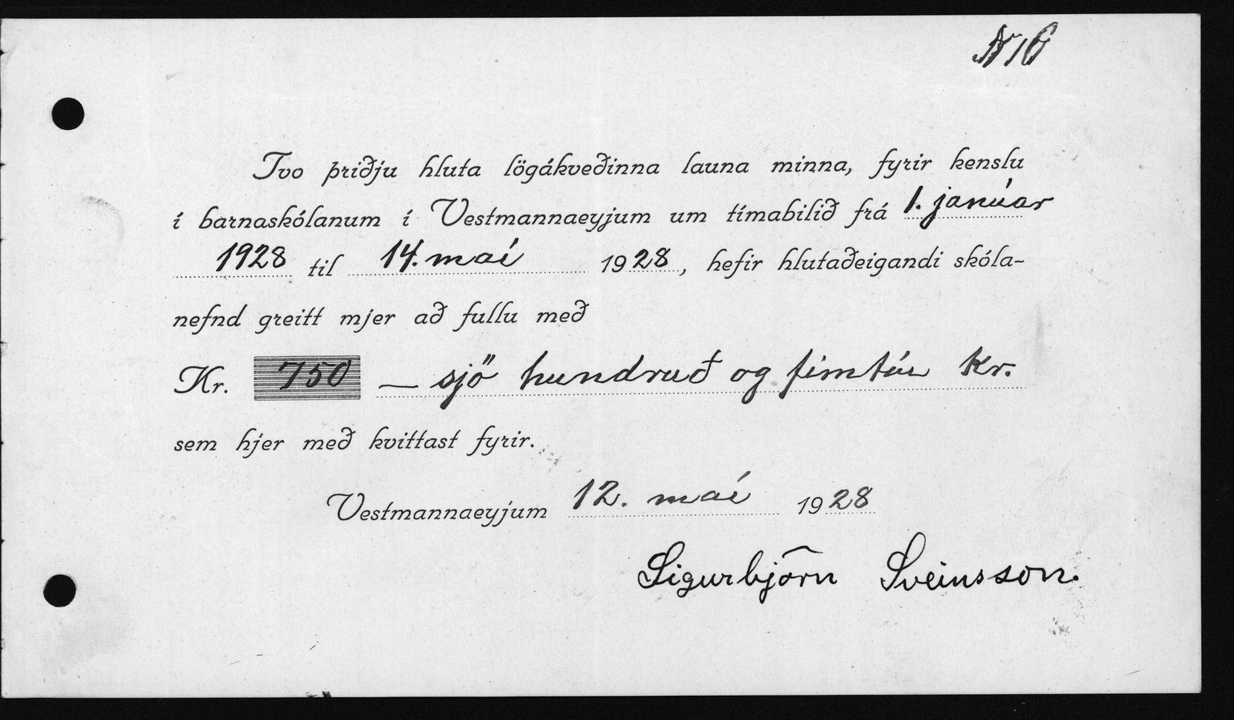 N 16
Tvo þriðju hluta lögákveðinna launa minna, fyrir kenslu
í barnaskólanum í Vestmannaeyjum um tímabilið frá 1. janúar
1928 til 14. maí 1928, hefir hlutaðeigandi skóla-
nefnd greitt mjer að fullu með
Kr. 750 — sjö hundruð og fimtíu kr.
sem hjer með kvittast fyrir.
Vestmannaeyjum 12. maí 1928
Sigurbjörn Sveinsson.